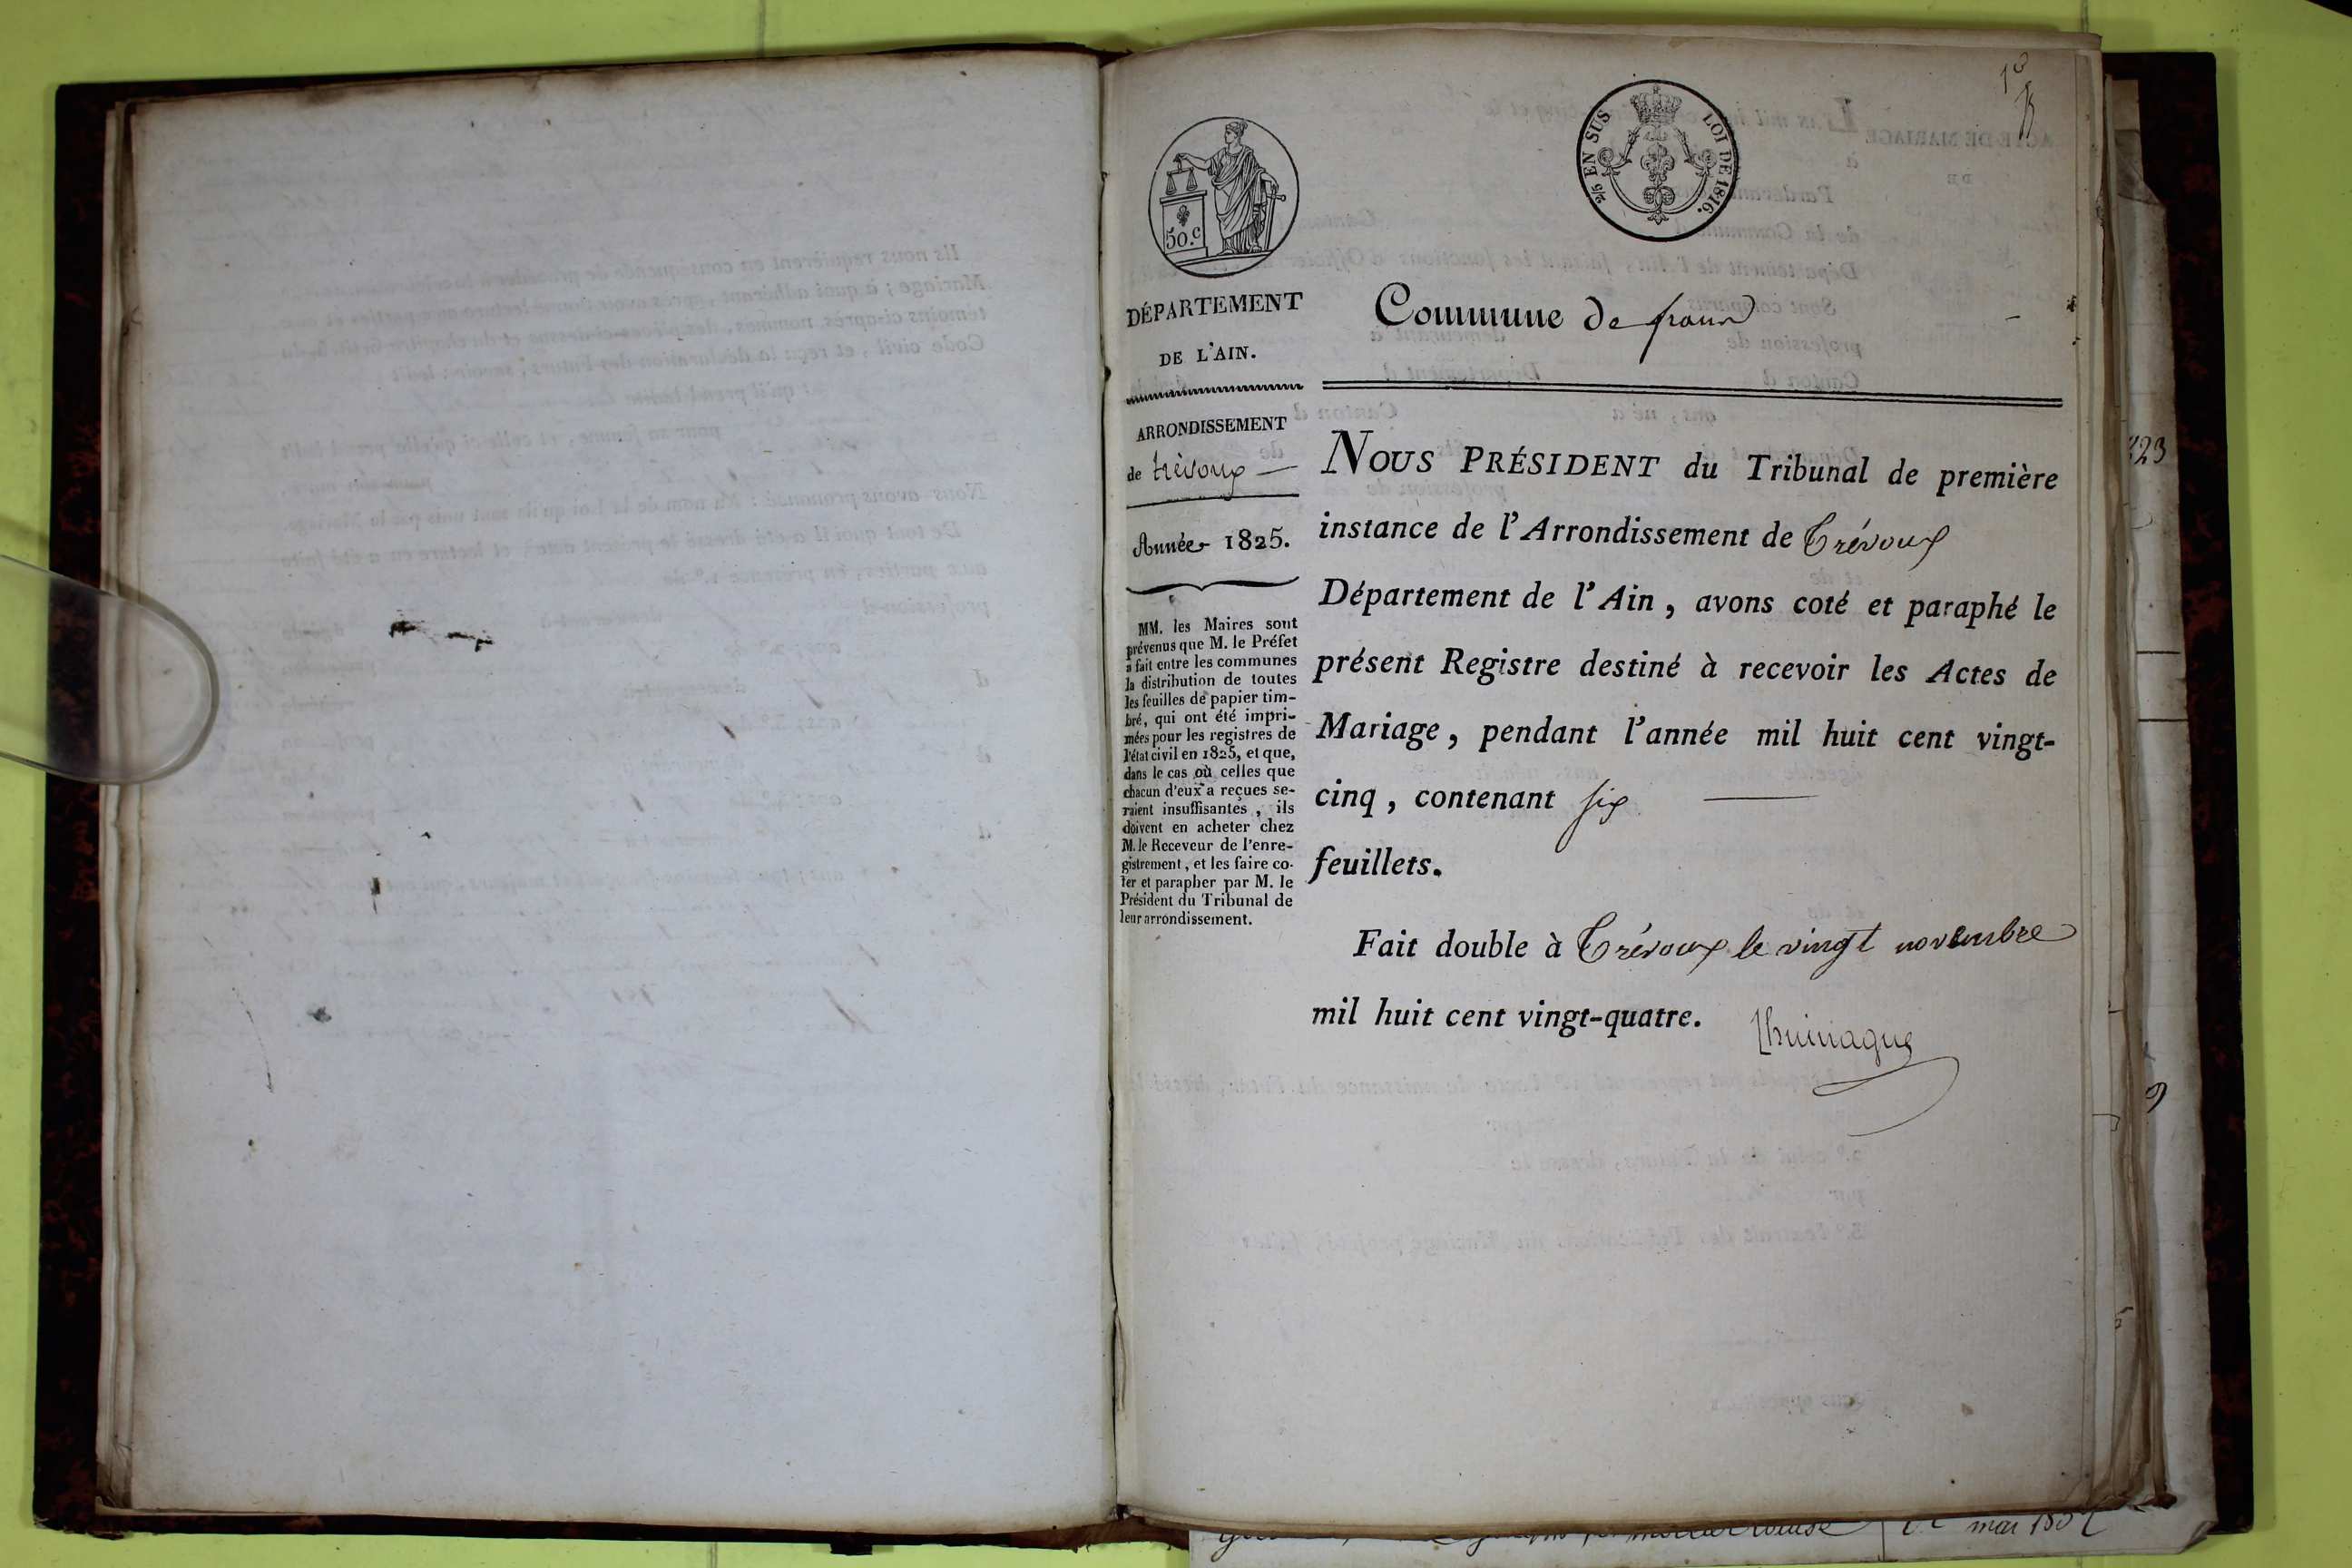 50.c
2/5 EN SUS LOI DE 1816.
DÉPARTEMENT
DE L'AIN.
ARRONDISSEMENT
de trévoux —
Année 1825.
MM. les Maires sont
prévenus que M. le Préfet
a fait entre les communes
la distribution de toutes
les feuilles de papier tim-
bré, qui ont été impri-
mées pour les registres de
l'état civil en 1825, et que,
dans le cas où celles que
chacun d'eux a reçues se-
raient insuffisantes, ils
doivent en acheter chez
M. le Receveur de l'enre-
gistrement, et les faire co-
ter et parapher par M. le
Président du Tribunal de
leur arrondissement.
Commune de frans
NOUS PRÉSIDENT du Tribunal de première
instance de l'Arrondissement de Trévoux
Département de l'Ain, avons coté et paraphé le
présent Registre destiné à recevoir les Actes de
Mariage, pendant l'année mil huit cent vingt-
cinq, contenant six —
feuillets.
Fait double à Trévoux le vingt novembre
mil huit cent vingt-quatre.
mai